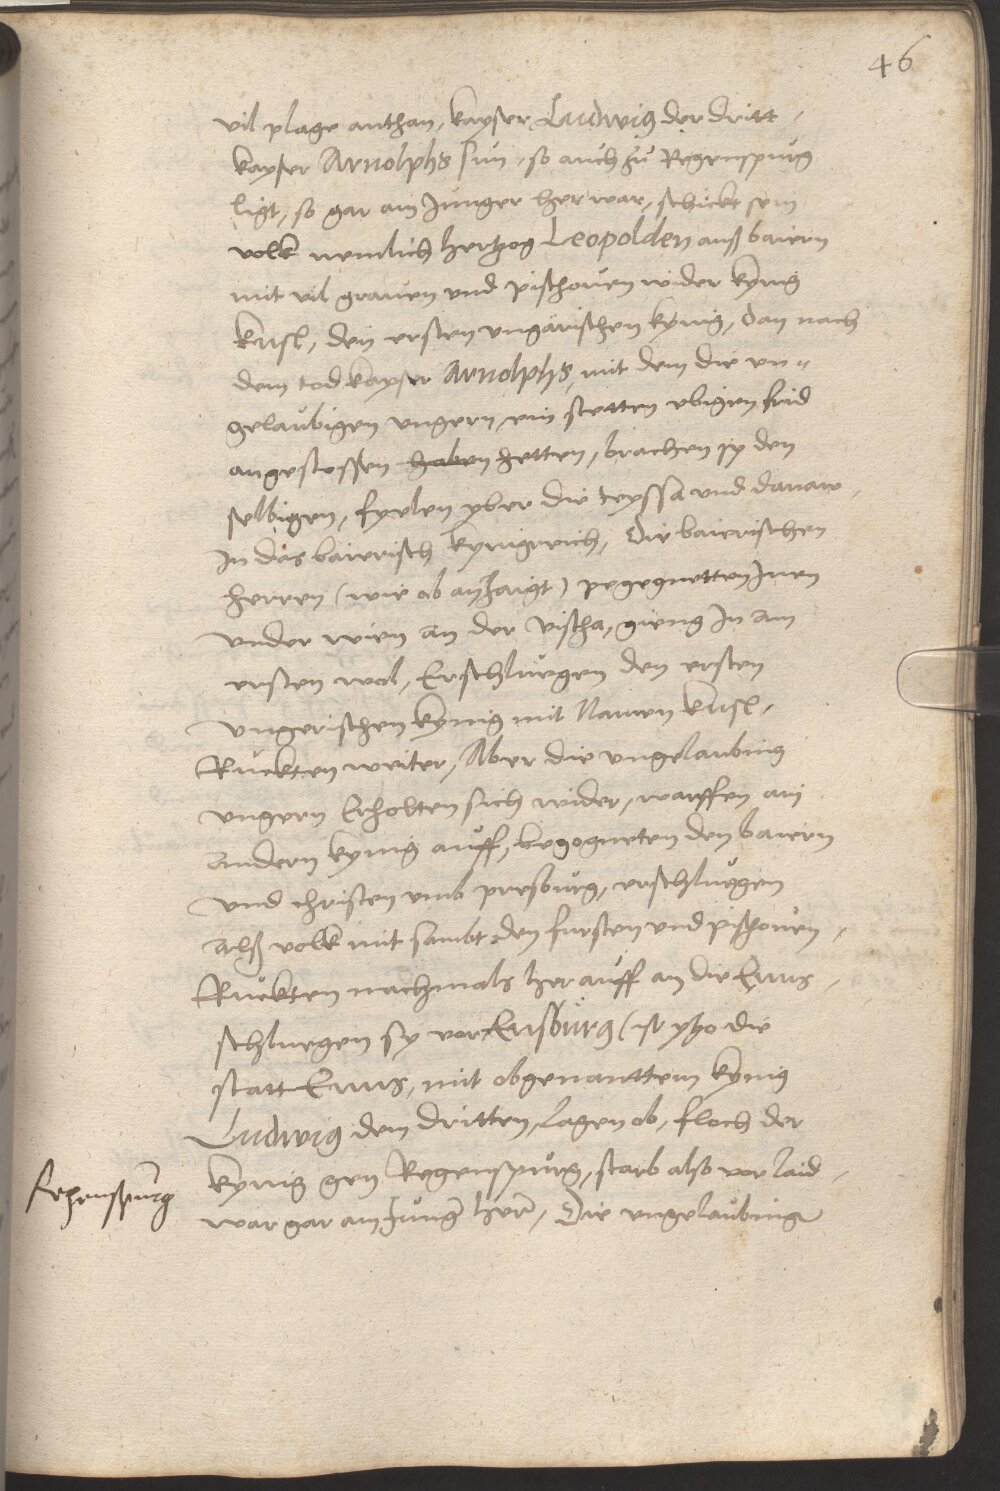 46
vil plage anthan, kayser Ludwig der dritt,
kayser Arnolphs sun, so auch zů Regenspurg
ligt, so gar ain Junger her war, schickt sein
volk nemlich hertzog Leopolden auß baiern
mit vil graven und pischoven wider kynig
kusl, den ersten ungarischen kynig, dan nach
dem tod kayser Arnolphs, mit dem die un-
gelaubigen ungern ein stetten ebigen frid
angestossen haben hetten, brachen sy den
selbigen, fyelen yber die teyssa und danaw,
In das baierisch kynigreich, die baierischen
herren (wie ob anzaigt) pegegnetten Inen
under wien an der vischa, gieng In am
ersten wol, Erschluegen den ersten
ungerischen kynig mit Namen kusl,
Ruckten weiter, Aber die ungelaubing
ungern Erholten sich wider, warffen ain
andern kynig auff, begegneten den baiern
und christen umb presburg, erschluegen
alß volk mit sambt den fursten und pischoven,
Ruckten nachmals herauff an die Enns,
schluegen sy vor Ensburg (ist ytzo die
statt Enns, mit obgenanttem kynig
Ludwig dem dritten, lagen ob, floch der
kynig gen Regenspurg, starb also vor laid,
war gar ain Jung her, Die ungelaubing
Regenspurg